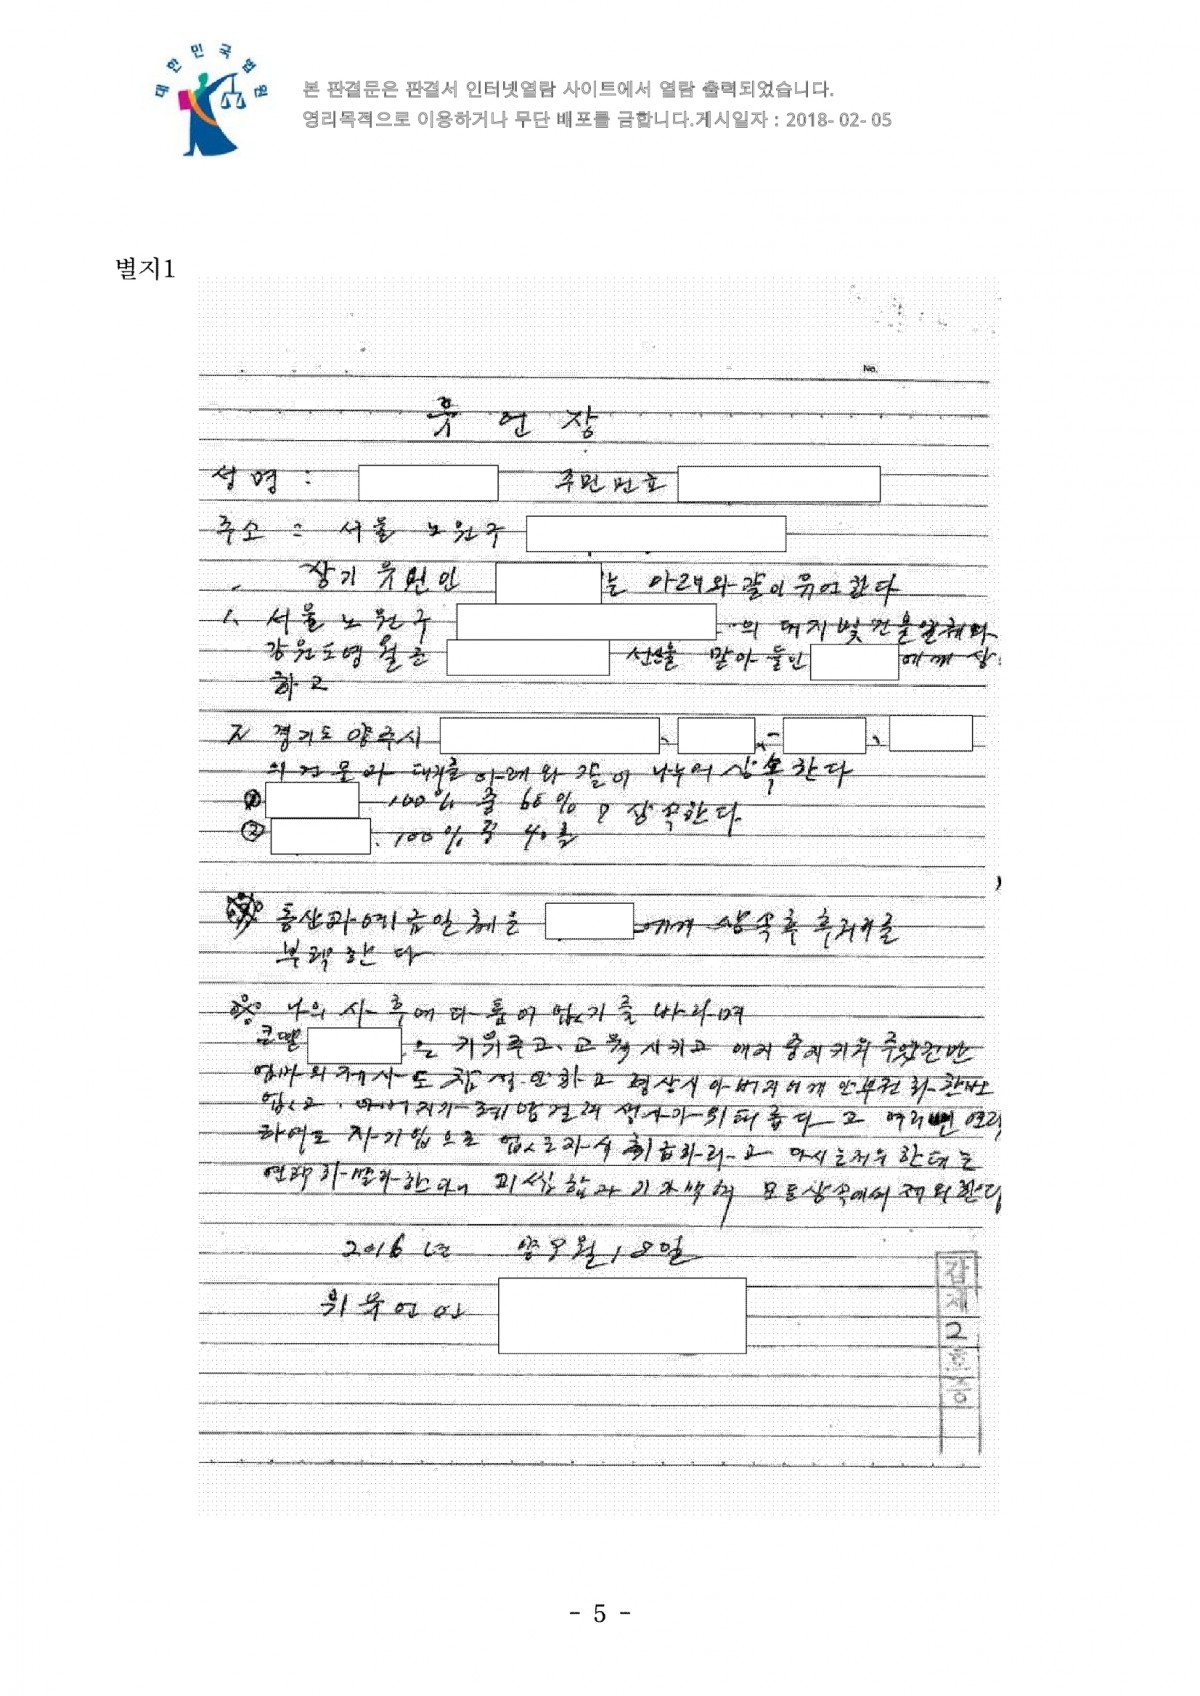 대한민국법원
본 판결문은 판결서 인터넷열람 사이트에서 열람 출력되었습니다.
영리목적으로 이용하거나 무단 배포를 금합니다.게시일자 : 2018-02-05
별지1
No.
웃 언 장
성 명 : 주민번호
주소 : 서울 노원구
상기 웃언인 는 아래와 같이 유언한다
1. 서울 노원구 의 대지 및 건물일체와
강원도 영월군 선산을 맏아들인 에게 상
하고
2. 경기도 양주시
의 건물과 대지를 아래와 같이 나누어 상속한다
① 100% 중 60% 상속한다
② 100% 중 40를
통산과 예금일체는 에게 상속후 후처리를
부탁한다
나의 사후에 다툼이 없기를 바라며
큰딸 은 키워주고, 교육시키고 애기 중지키워 주었건만
엄마의 제사도 참석 안하고 평상시 아버지에게 안부전화 한번
없고, 아버지가 생사가 위태롭다고 여러번 연락
하여도 자기집으로 없는자식 취급하라고 다시는 저희한테는
연락하 말라한다니 모든상속에서 제외한다
2016년 양 9월 18일
위 유언인
갑제2호증
- 5 -